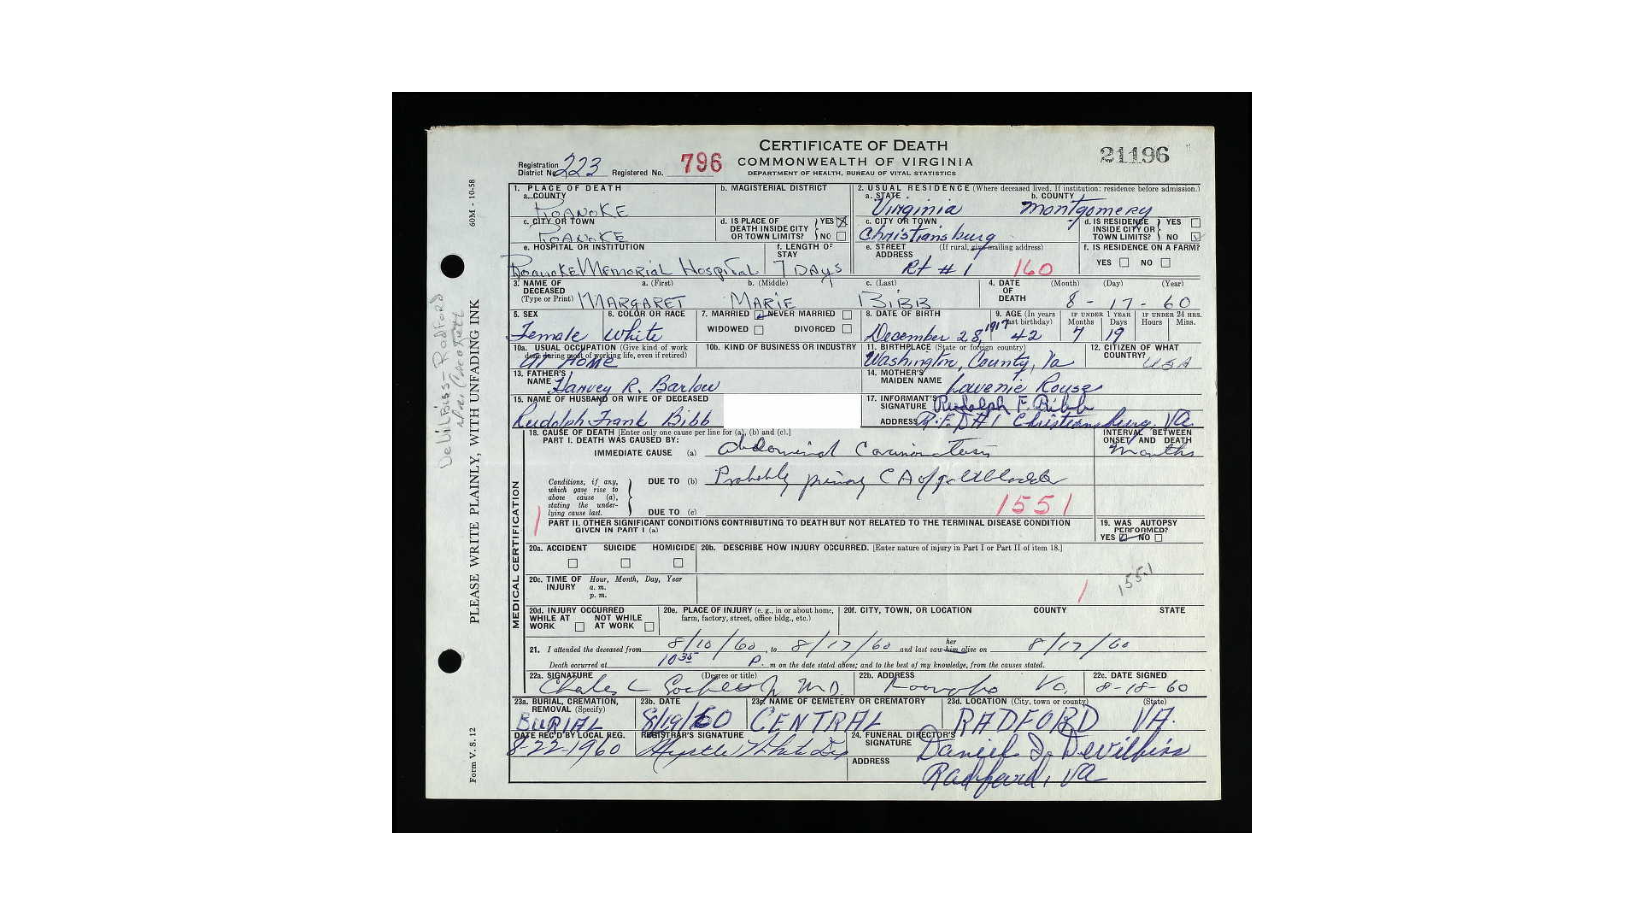 CERTIFICATE OF DEATH
COMMONWEALTH OF VIRGINIA
DEPARTMENT OF HEALTH, BUREAU OF VITAL STATISTICS
21196
Registration District No. 223 Registered No. 796
60M - 10-58
PLEASE WRITE PLAINLY, WITH UNFADING INK
Form V. S. 12
1. PLACE OF DEATH
a. COUNTY
ROANOKE
b. MAGISTERIAL DISTRICT
2. USUAL RESIDENCE (Where deceased lived. If institution: residence before admission.)
a. STATE
Virginia
b. COUNTY
Montgomery
c. CITY OR TOWN
ROANOKE
d. IS PLACE OF DEATH INSIDE CITY OR TOWN LIMITS? YES NO
c. CITY OR TOWN
Christiansburg
d. IS RESIDENCE INSIDE CITY OR TOWN LIMITS? YES NO
e. HOSPITAL OR INSTITUTION
Roanoke Memorial Hospital
f. LENGTH OF STAY
7 DAYS
e. STREET ADDRESS (If rural, give mailing address)
Rt # 1 160
f. IS RESIDENCE ON A FARM?
YES NO
3. NAME OF DECEASED (Type or Print)
a. (First) b. (Middle) c. (Last)
MARGARET MARIE BIBB
4. DATE OF DEATH (Month) (Day) (Year)
8 - 17 - 60
5. SEX
Female
6. COLOR OR RACE
White
7. MARRIED NEVER MARRIED
WIDOWED DIVORCED
8. DATE OF BIRTH
December 28, 1917
9. AGE (In years last birthday)
42
IF UNDER 1 YEAR Months Days
7 19
IF UNDER 24 HRS. Hours Mins.
10a. USUAL OCCUPATION (Give kind of work done during most of working life, even if retired)
At Home
10b. KIND OF BUSINESS OR INDUSTRY
11. BIRTHPLACE (State or foreign country)
Washington, County, Va
12. CITIZEN OF WHAT COUNTRY?
USA
13. FATHER'S NAME
Harvey R. Barlow
14. MOTHER'S MAIDEN NAME
Lavenie Rouse
15. NAME OF HUSBAND OR WIFE OF DECEASED
Rudolph Frank Bibb
17. INFORMANT'S SIGNATURE Rudolph F. Bibb
ADDRESS R.F.D # 1 Christiansburg, Va.
MEDICAL CERTIFICATION
18. CAUSE OF DEATH [Enter only one cause per line for (a), (b) and (c).]
PART I. DEATH WAS CAUSED BY:
IMMEDIATE CAUSE (a) Abdominal
INTERVAL BETWEEN ONSET AND DEATH
Months
Conditions, if any, which gave rise to above cause (a), stating the underlying cause last.
DUE TO (b) Probably primary CA of gallbladder
DUE TO (c)
1551
PART II. OTHER SIGNIFICANT CONDITIONS CONTRIBUTING TO DEATH BUT NOT RELATED TO THE TERMINAL DISEASE CONDITION GIVEN IN PART I (a)
19. WAS AUTOPSY PERFORMED?
YES NO
20a. ACCIDENT SUICIDE HOMICIDE
20b. DESCRIBE HOW INJURY OCCURRED. [Enter nature of injury in Part I or Part II of item 18.]
20c. TIME OF INJURY Hour, Month, Day, Year
a. m.
p. m.
155.1
20d. INJURY OCCURRED
WHILE AT WORK NOT WHILE AT WORK
20e. PLACE OF INJURY (e. g., in or about home, farm, factory, street, office bldg., etc.)
20f. CITY, TOWN, OR LOCATION COUNTY STATE
21. I attended the deceased from 8/10/60, to 8/17/60 and last saw him her alive on 8/17/60
Death occurred at 10 35 P. m on the date stated above; and to the best of my knowledge, from the causes stated.
22a. SIGNATURE (Degree or title)
Charles L M.D.
22b. ADDRESS
Roanoke Va.
22c. DATE SIGNED
8-18-60
23a. BURIAL, CREMATION, REMOVAL (Specify)
BURIAL
23b. DATE
8/19/60
23c. NAME OF CEMETERY OR CREMATORY
CENTRAL
23d. LOCATION (City, town or county) (State)
RADFORD VA.
DATE REC'D BY LOCAL REG.
8-22-1960
REGISTRAR'S SIGNATURE
24. FUNERAL DIRECTOR'S SIGNATURE
Daniel D. DeVilbiss
ADDRESS
Radford, Va